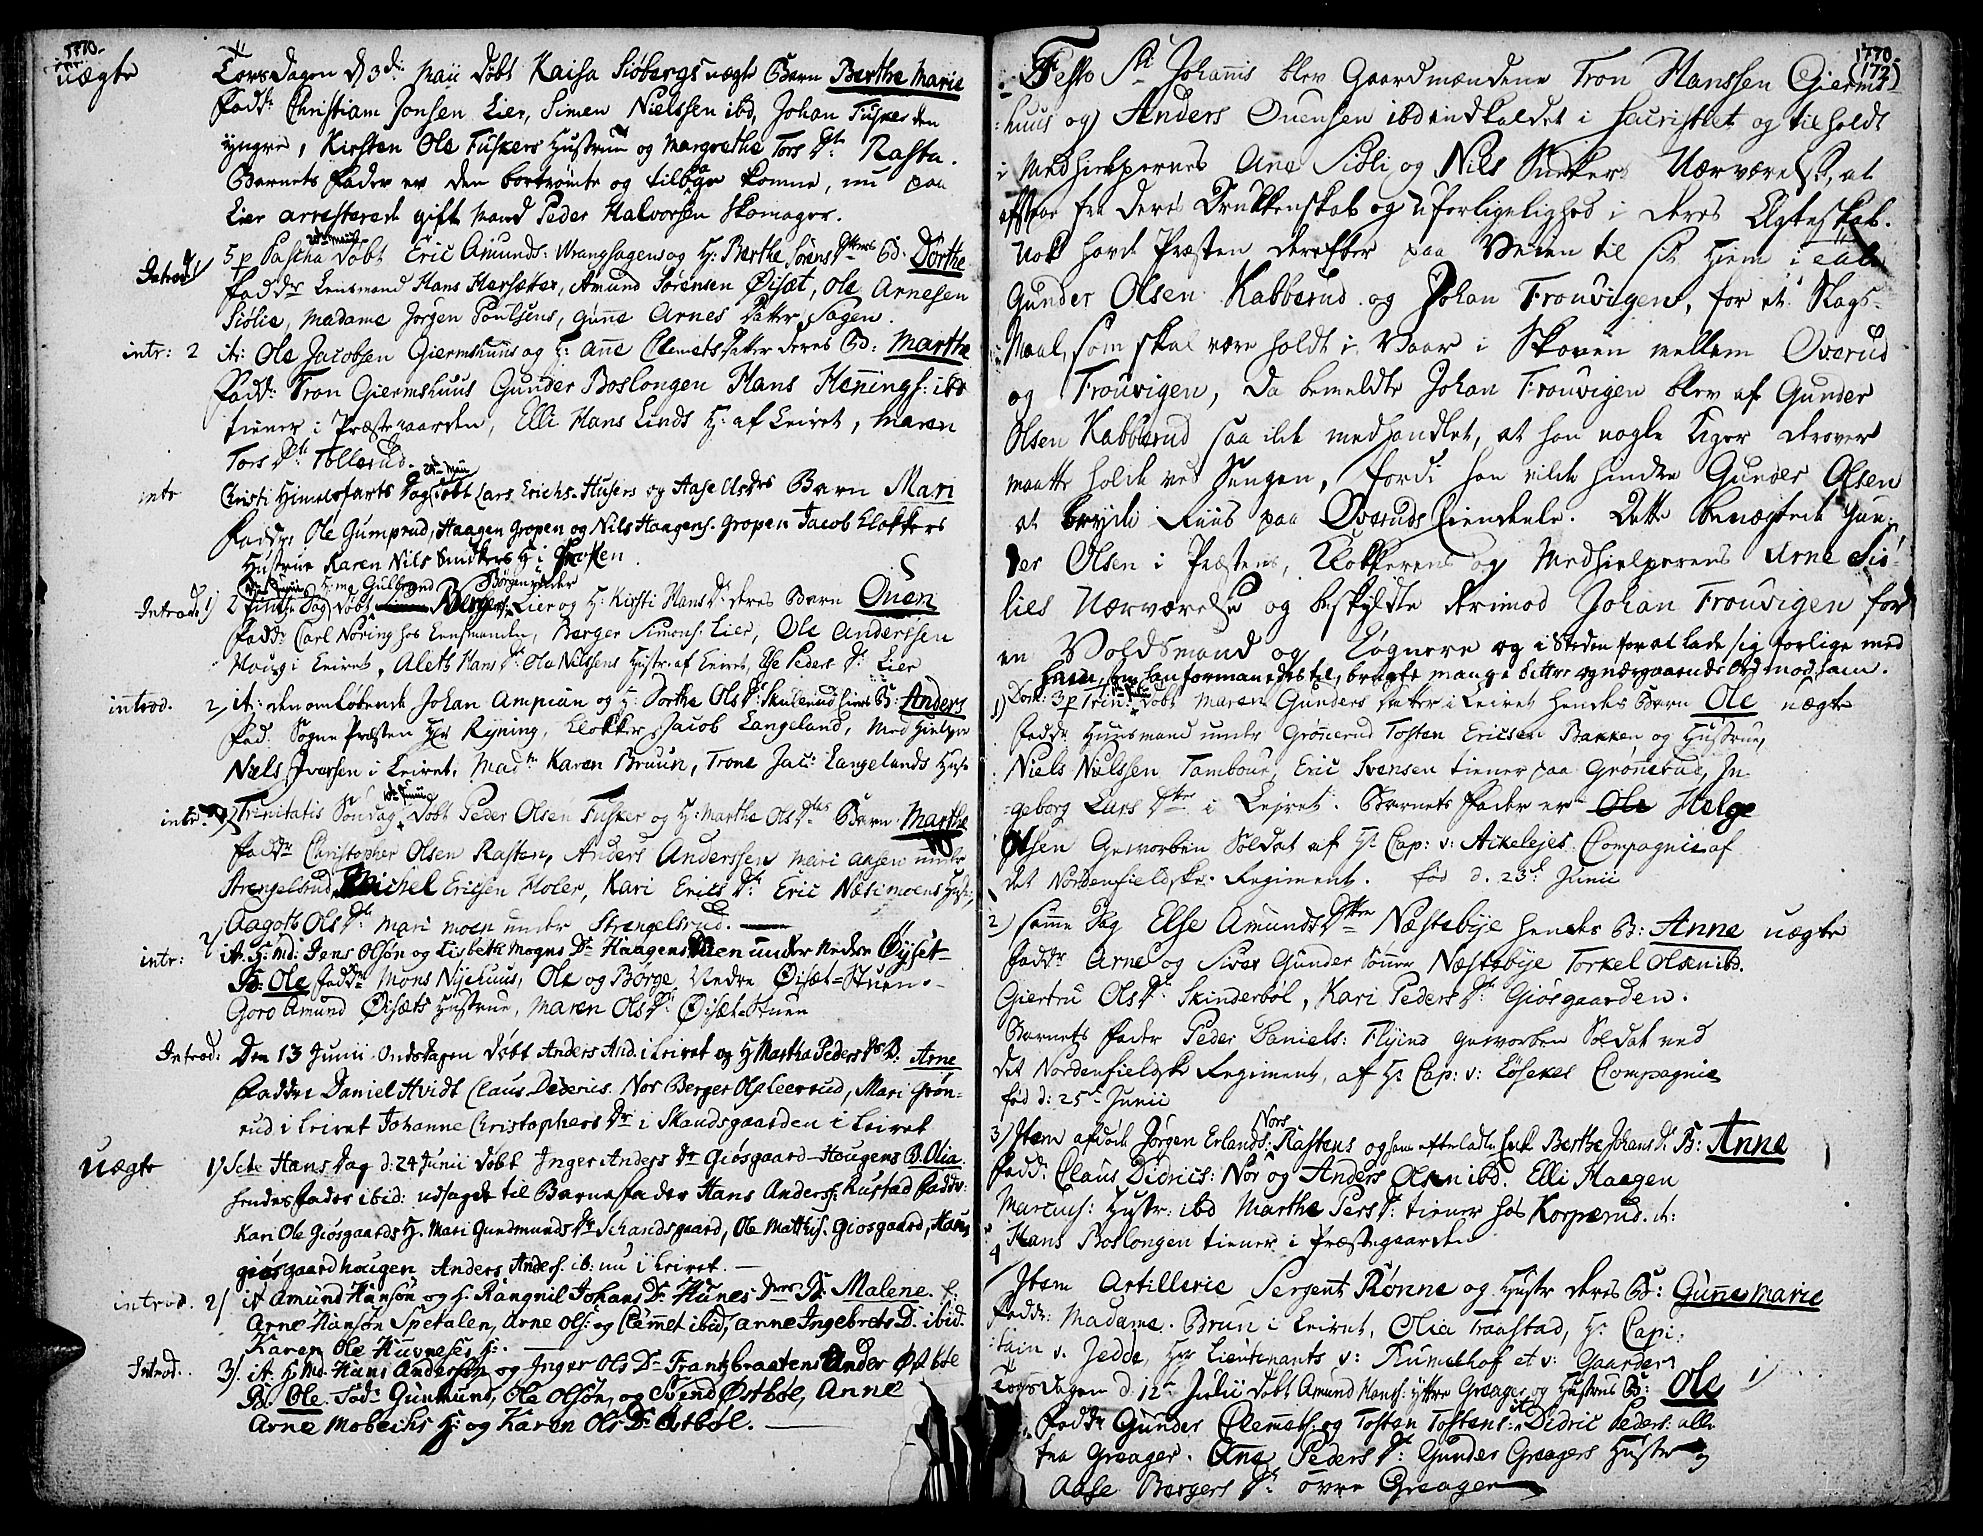 1770.
uægte
Torsdagen d 3d: Maii døbt Kaisa Siöbergs uægte Barn Berthe Marie
Fadd: Christiam Jonsen Lier, Simen Nielssen ibd, Johan Fusker den
yngre, Kirsten Ole Fuskers Hustrue og Margrethe Tors Dtr Rasta.
Barnets Fader er den bortrömte og tilbage komne, nu paa
Lier arresterede gift Mand Peder Halvorsen Skomager.
Introd: 1/ 5 p Pascha døbt Eric Amunds: Wranghagen og H: Berthe Sörens Dtters Bd. Dorthe
Fadd: Lensmand Hans Hersæter, Amund Sörensen Öisæt, Ole Arnesen
Siölie, Madame Jörgen Poulsens, Gune Arnes Datter Sagen.
intr: 2 it: Ole Jacobsen Giermshuus og H: Ane Clemets datter deres Bd: Marthe
Fadd: Tron Giermshuus Gunder Boslongen Hans Henings: ibd
tiener i Præstegaarden, Elli Hans Linds H: af Leiret, Maren
Tors Dtr Tollerud.
intr Christi Himelfarts Dag døbt Lars Erichs: Husers og Aase Ols Drs Barn Mari
Faddr. Ole Gumprud, Haagen Gropen og Nils Haagens: Gropen Jacob Klokkers
Hustrue Karen Nils Smukkers H: i Kroken.
Introd: 1) 2 Pintse Dag døbt Berger Lier og H: Kirsti Hans D: deres Barn Ouen
Fadd: Carl Nöring hos Lensmanden, Berger Simons: Lier, Ole Anderssen
Houg i Leiret, Aleth Hans Dtr Ola Nilssens Hustr: af Leiret, Else Peders Dtr Lier
introd. 2, it: den omlöbende Johan Ampian og H: Dorthe Ols Dtr: Skulerud hiers B: Anders
Fad. Sogne Præsten Hr Ryning, Klokker Jacob Langeland, Medhielper
Niels Iversen i Leiret, Madm Karen Bruun, Trone Jac: Langelands Hus:
intr: 1) Trinitatis Söndag døbt Peder Olsen Fusker og H: Marthe Ols Dtrs Barn Marthe
Fadd: Christopher Olsen Rasten, Anders Anderssen Mari Aasen under
Strengelsrud, Michel Ericsen Holer, Kari Erics Dtr Eric Næsimoens Hust:
Aagoth Ols Dtr Mari Moen under Strengelsrud.
intr: 2 it. H: Md: Jens Olsön og Lisbeth Mogns Dr Haagenstuen under Nedre Öyset
B: Ole Faddr Mons Nyehuus, Ole og Börge Nedre Öisæt-Stuen
Goro Amund Öisæts Hustrue, Maren Ols Dtr Öisæt-Stuen
Introd: Den 13 Junii Onsdagen døbt Anders And: i Leiret og H Martha Peders Drs B. Arne
Faddre Daniel Hvidt Claus Dideriks Nor Berger Ols: Leerrud, Mari Grön-
rud i Leiret Johanne Christophers Dr i Skandsgaarden i Leiret
uægte 1/ Scte Hans Dag d: 24 Junii døbt Inger Anders Dr Giösgaard-Haugens B. Olia
hendes Fader ibid: udsagde til Barnefader Hans Anderss: Rustad Faddre:
Kari Ole Giösgaards H. Mari Gundmunds Dr Schandsgaard, Ole Matthis. Giosgaard, Hans
giösgaardhougen Anders Anders. ib: nu i Leiret.
introd. 2/ it Amund Hansön og H: Rangnil Johans Dr Hunes Drs B. Malene. f:
Arne Hansön Spetalen, Arne Ols: og Clemet ibid, Anne Ingebrets D. ibid.
Karen Ole Huvneses H:.
Introd. 3/. it H: Md: Hans Andersön og Inger Ols Dr Frantzbraaten under Östböe
B. Ole Fadr Gunmund, Ole Olsön, og Svend Östböe, Anne
Arne Mobechs H: og Karen Ols D: Östböl.
1770.
(172)
Festo Sti Johanis blev Gaardmændene Tron Hanssen Gierms-
huus og Anders Ouensen ibd indkaldet i Sacristiet og tilholdt
i Medhielpernes Arne Siöli og Nils Smikkers Nærværelse, at
afstaae fra deres Drukkenskab og Uforligelighed i deres Ægteskab.
Nok havde Præsten derefter paa Veien til sit Hiem i tale
Gunder Olsen Kabberud og Johan Trouvigen, for et Slags-
Maal, som skal være holdt i Vaar i Skoven mellem Overud
og Trouvigen, da bemeldte Johan Trouvigen blev af Gunder
Olsen Kabberud saa ilde medhandlet, at han nogle Uger derover
maatte holde ved Sengen, fordi han vilde hindre Gunder Olsen
at bryde Riis paa Overuds Eiendeele. Dette benægtede Gun-
der Olsen i Præstens, Klokkerens og Medhielperens Arne Siö-
lies Nærværelse og beskyldte derimod Johan Trouvigen for
en Voldsmand og Løgnere og i Steden for at lade sig forlige med
ham, som han formanedes til, brugte mange bittre og nærgaaende Ord mod ham.
1) Dom: 3 p Trin: døbt Maren Gunders Datter i Leiret hendes Barn Ole uægte
Faddr Huusmand under Grönerud Tosten Ericsen Bakken og Hustrue,
Niels Nielssen Tambour, Eric Svensen tiener paa Grönerud, In-
geborg Lars Dtter i Leiret. Barnets Fader er Helge
Olsen geworben Soldat af Hr Cap: v: Ackelejes Compagnie af
det Nordenfieldske Regiment. fød d. 23d Junii
2) samme Dag Else Amunds Dtter Næstebye hendes B: Anne uægte
Fadd: Arne og Siver Gunder Sönner Næstebye Torkel Olsen ibd.
Giertru Ols Dr Skinderböl, Kari Peders Dr Giösgaarden.
Barnets Fader Peder Daniels: Flyind geworben Soldat ved
det Nordenfieldske Regiment, af Hr Cap: v: Lösekes Compagnie
fød d: 25de Junii
3) Item afdöde Jörgen Erlands: Nors Rastens og hans efterladte Enke Berthe Johans D: B: Anne
Fadd: Claus Didrics: Nor og Anders Olsen ibd. Elli Haagen
Marcus: Hustr: ibd Marthe Pers D: tiener hos Korperud. it:
Hans Boslongen tiener i Præstegaarden
4 Item Artillerie Sergent Rønne og Hustr deres Bd: Gune Marie
Faddr: Madame Brun i Leiret, Olia Traastad, Hr Capi-
tain v. Jedde, Hrr Lieutenants v: Rumelhof et v: Gaarder
Torsdagen d. 12te Julii døbt Amund Hans: yttre Greager og Hustrus B: Ole 1)
Fadd: Gunder Clemets: og Tosten Tostens: it Didric Peders: alle
fra Greager. Ane Peders D: Gunder Greagers Hustr og
Aase Bergers D: övre Greager